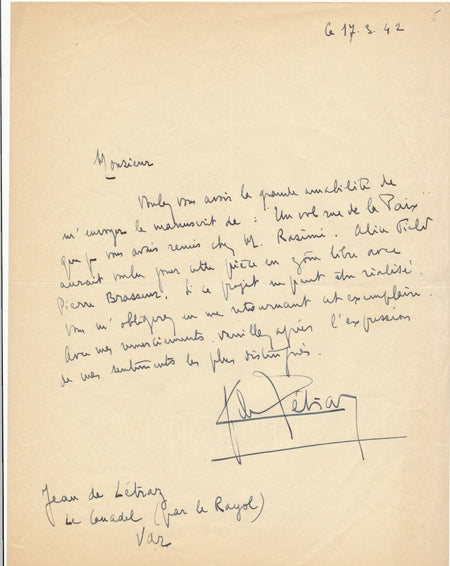 5
le 17.3.42
Monsieur
Voulez vous avoir la grande amabilité de
m'envoyer le manuscrit de : "Un vol rue de la Paix"
que je vous avais remis chez M. Rasimi. Alice Field
aurait voulu jouer cette pièce en zone libre avec
Pierre Brasseur. Si ce projet ne peut être réalisé
vous m'obligerez en me retournant cet exemplaire.
Avec mes remerciements, veuillez agréer l'expression
de mes sentiments les plus distingués.
J de Létraz
Jean de Létraz
Le Canadel (par le Rayol)
Var